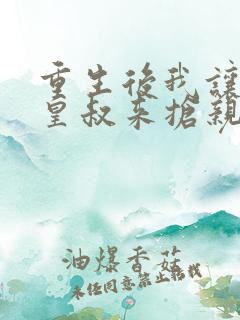 重生後我讓
皇叔來搶親
油爆香菇
未经同意禁止转载